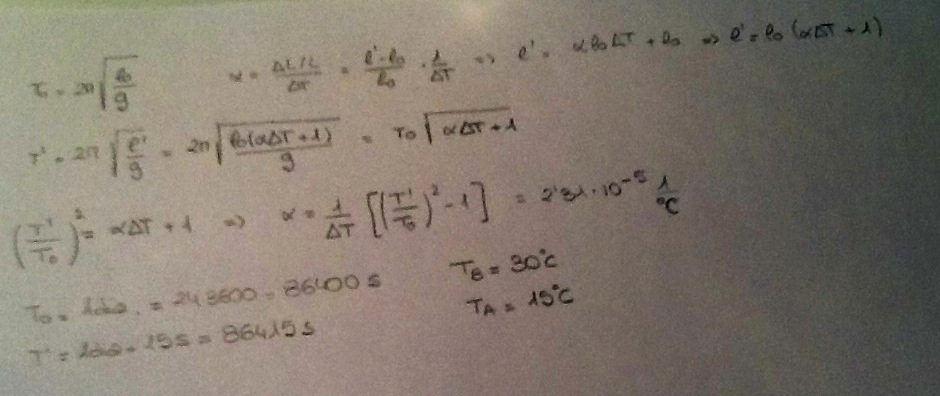 T₀ = 2π√(l₀/g)   α = (ΔL/L)/ΔT = (l'-l₀)/l₀ · 1/ΔT => l' = αl₀ΔT + l₀ => l' = l₀(αΔT + 1)
T' = 2π√(l'/g) = 2π√(l₀(αΔT + 1)/g) = T₀√(αΔT + 1)
(T'/T₀)² = αΔT + 1 => α = 1/ΔT [(T'/T₀)² - 1] = 2'31·10⁻⁵ 1/°C
T₀ = 1día = 24·3600 = 86400 s   T_B = 30°C
T' = 1día + 15s = 86415 s   T_A = 15°C